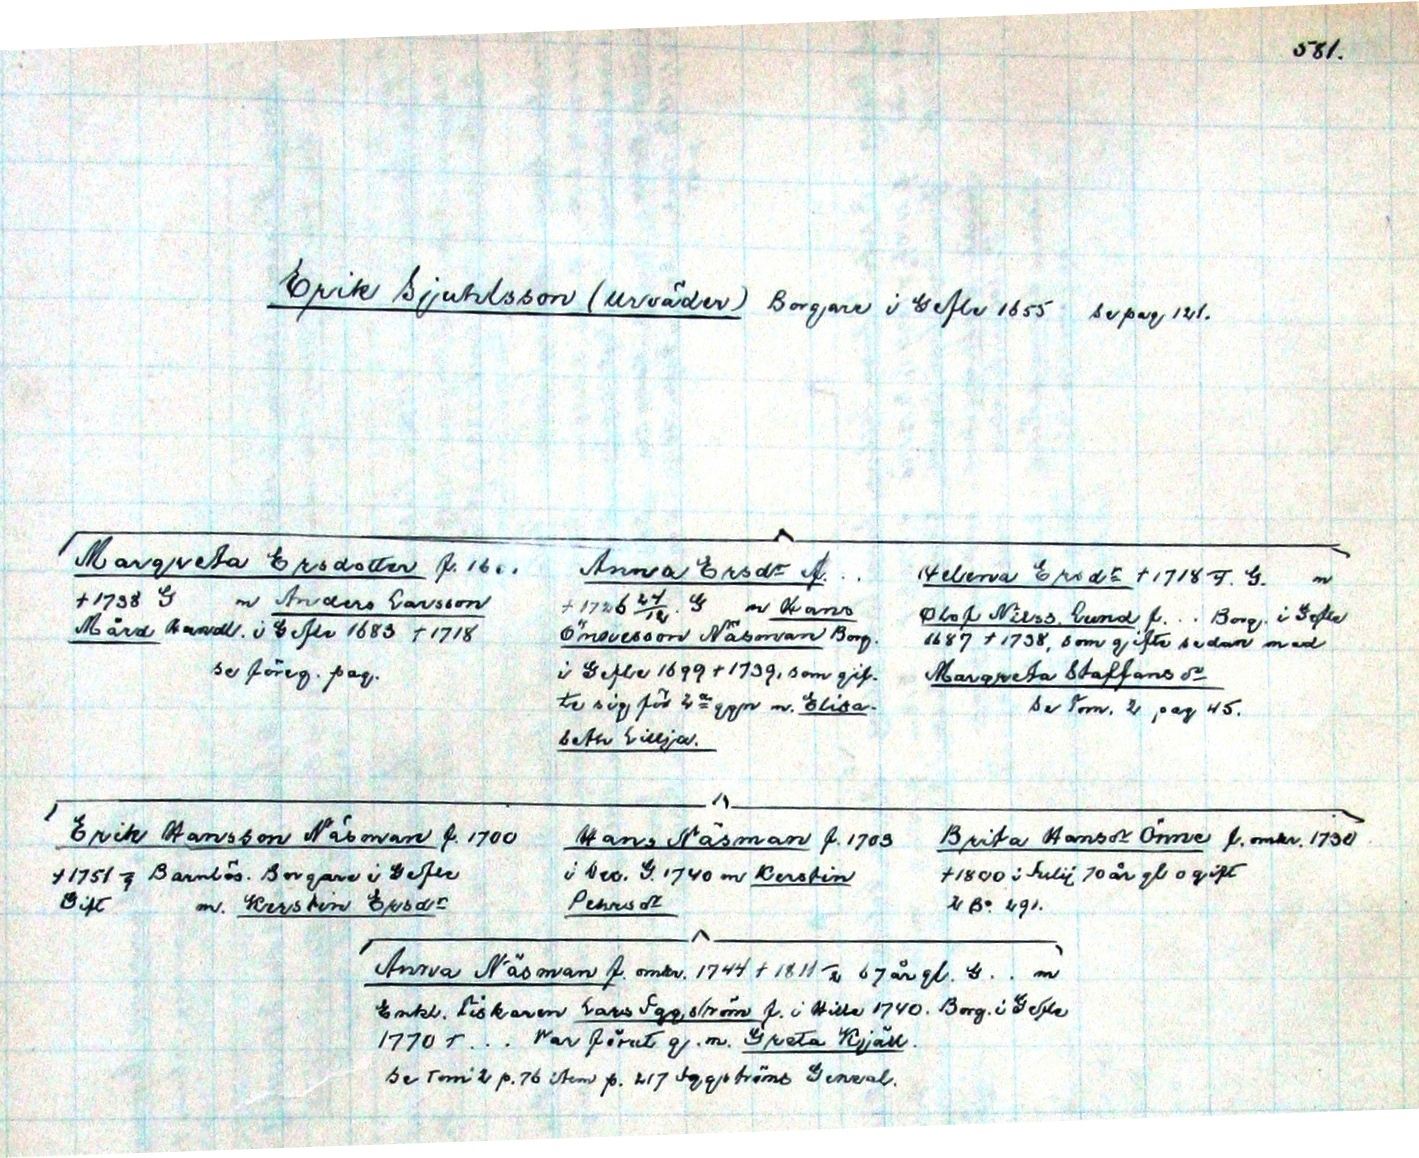 581.
Erik Sjuhlsson (Urväder) Borgare i Gefle 1655 se pag 121.
Margreta Ersdotter f. 16..
+1738 G m Anders Larsson
Mård Handl. i Gefle 1683 +1718
se föreg. pag.
Anna Ersdr f. . .
+1726 27/12. G m Hans
Önnesson Näsman Borg.
i Gefle 1699 + 1739, som gif-
te sig för 2a ggn m. Elisa-
beth Lillja.
Helena Ersdr +1718 G. m
Olof Nilss. Lund f... Borg. i Gefle
1687 +1738, som gifte sedan med
Margreta Staffansdr
Se Tom. 2 pag 45.
Erik Hansson Näsman f. 1700
+1751 Barnlös. Borgare i Gefle
Gift m. Kerstin Ersdr
Hans Näsman f. 1703
i Dec. G. 1740 m Kerstin
Pehrsdr
Brita Hansdr Önne f. omkr. 1730
+1800 i Julij 70 år gl ogift
2 Bo. 291.
Anna Näsman f. omkr. 1744 + 1811 67 år gl. G . . m
Enkl. Fiskaren Lars Iggström f. i Hille 1740. Borg. i Gefle
1770 + ... Var förut g. m. Greta Kjäll.
Se Tom 2 p. 76 item p. 217 Iggströms Geneal.